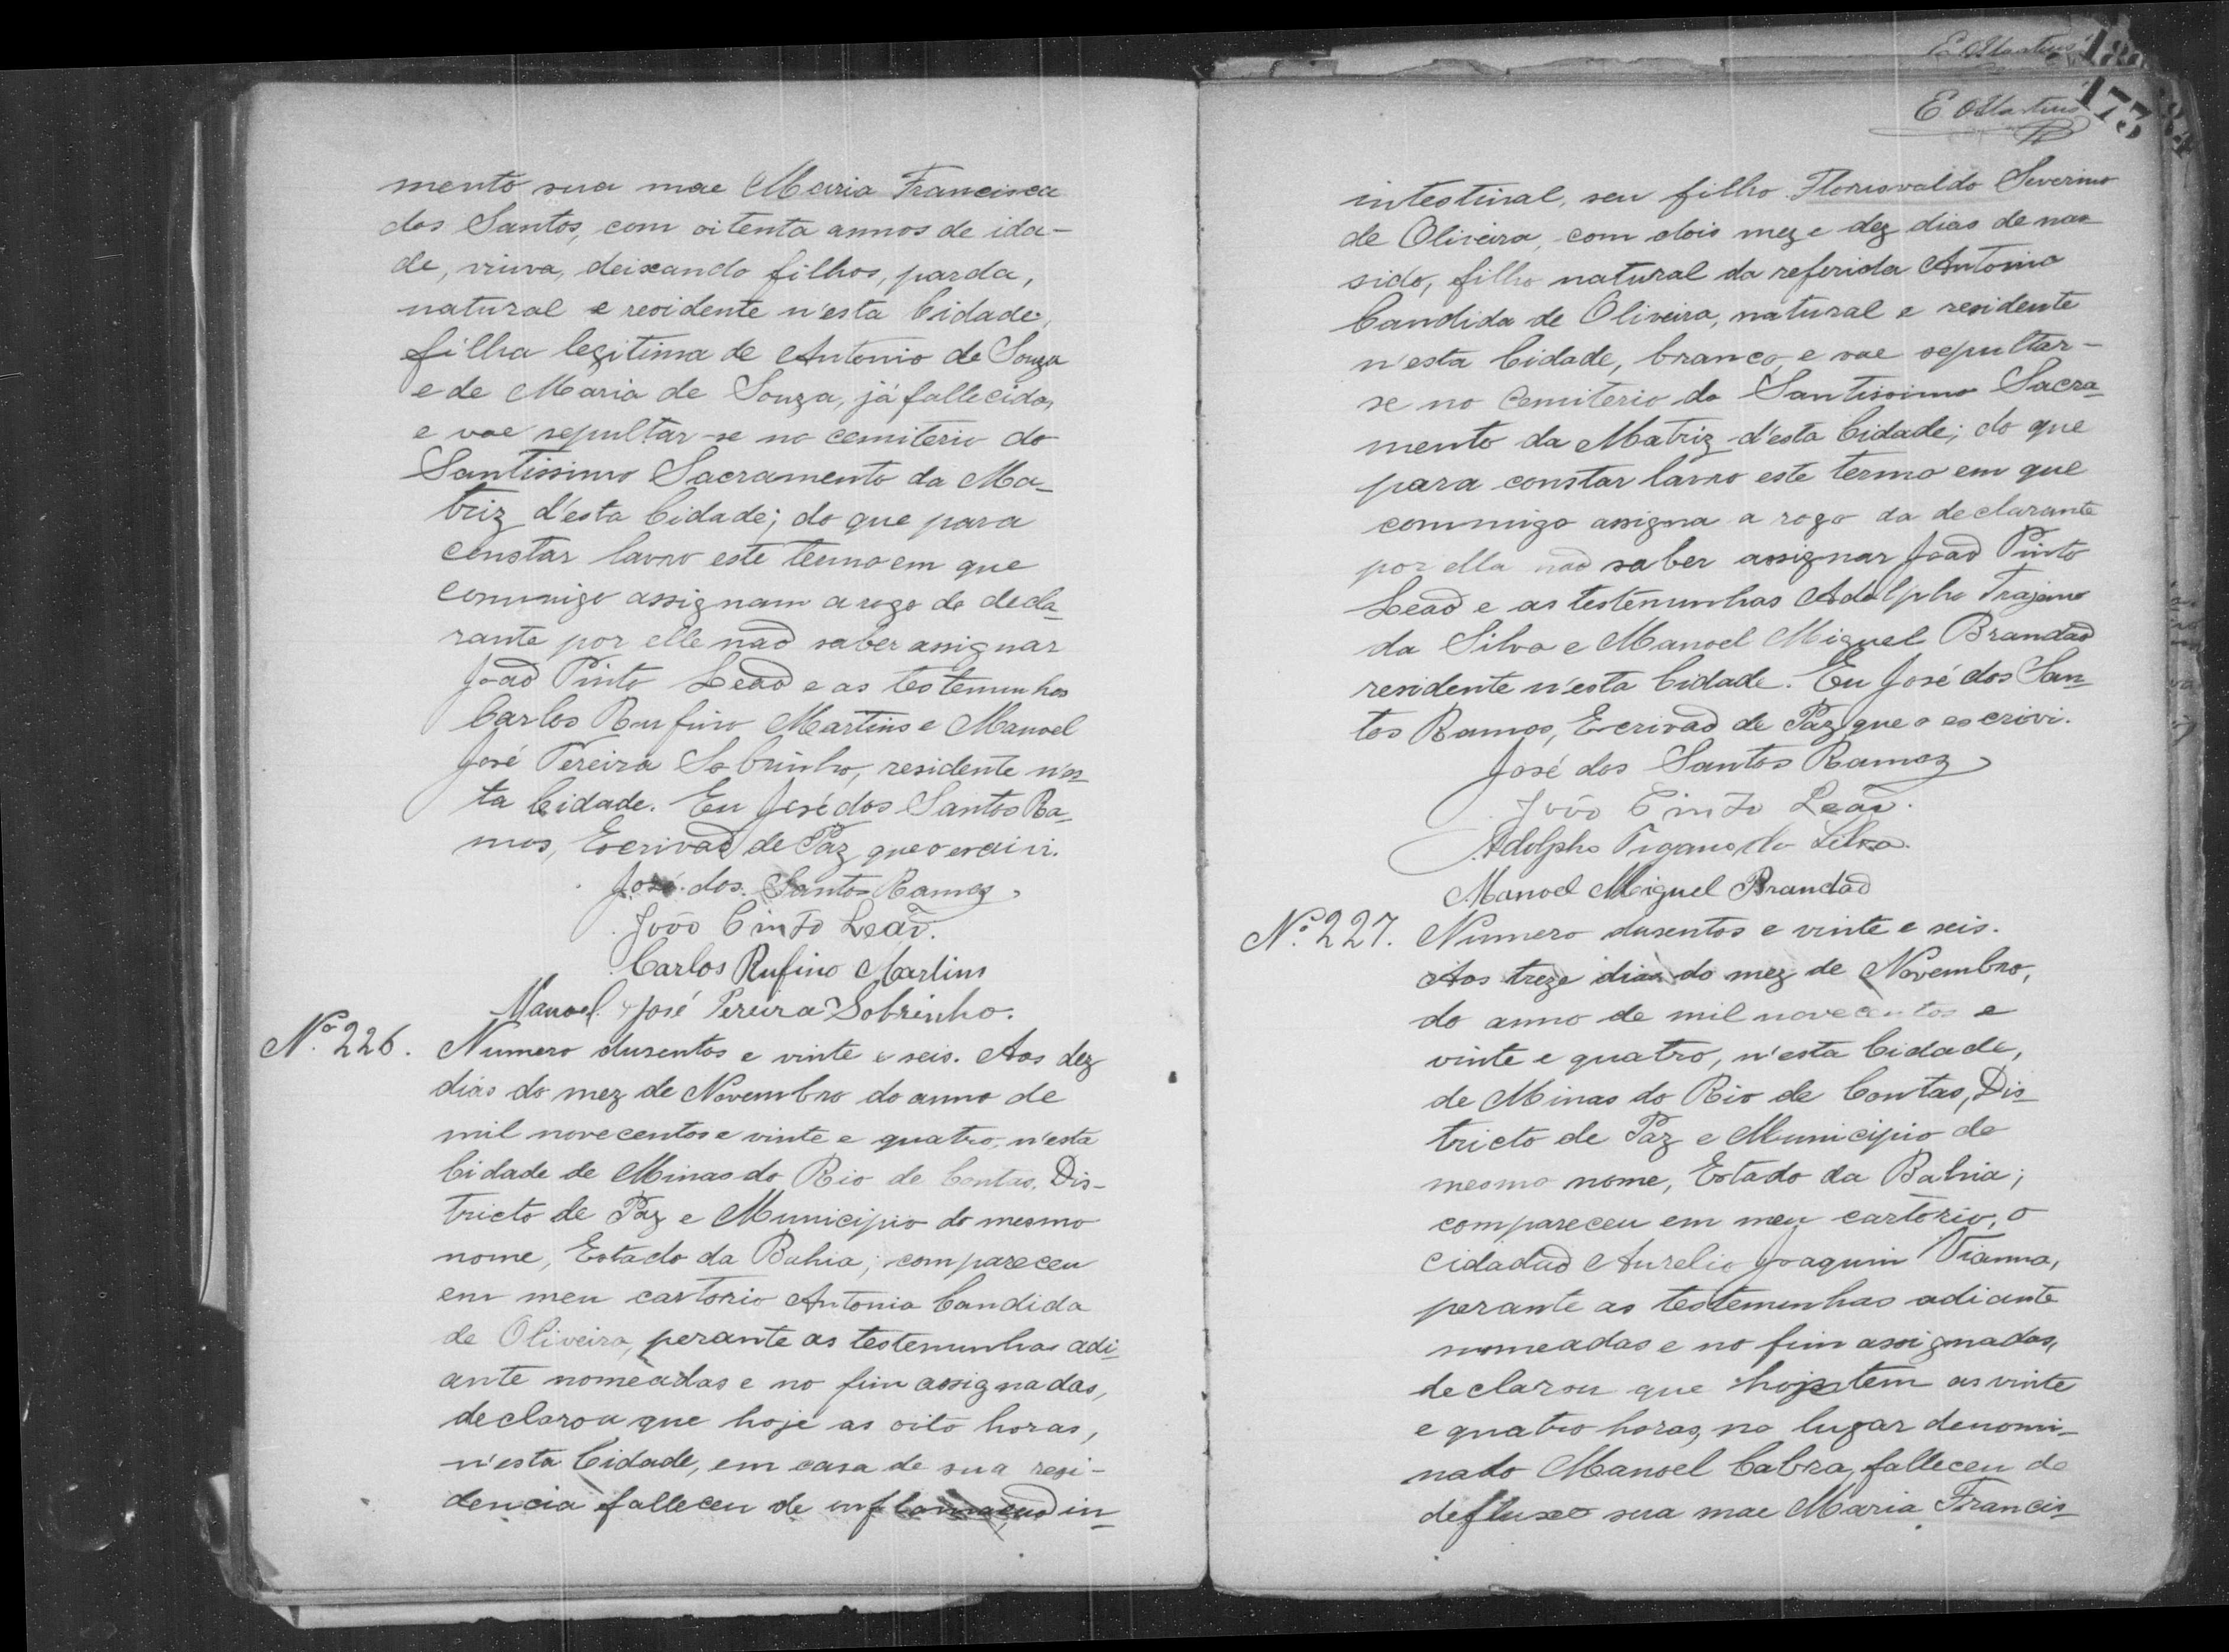 mento sua mae Maria Francisca
dos Santos, com oitenta annos de ida-
de, viuva, deixando filhos, parda,
natural e residente n'esta Cidade,
filha legitima de Antonio de Souza
e de Maria de Souza, já fallecidos,
e vae sepultar-se no cemiterio do
Santissimo Sacramento da Ma-
triz d'esta Cidade; do que para
constar lavro este termo em que
commigo assignam a rogo do decla-
rante por elle não saber assignar
João Pinto Leão e as testemunhas
Carlos Rufino Martins e Manoel
José Pereira Sobrinho, residente n'es-
ta Cidade. Eu José dos Santos Ra-
mos, Escrivão de Paz que o escrivi.
José dos Santos Ramos
João Pinto Leão.
Carlos Rufino Martins
Manoel José Pereira Sobrinho.
Nº 226. Numero dusentos e vinte e seis. Aos dez
dias do mez de Novembro do anno de
mil novecentos e vinte e quatro, n'esta
Cidade de Minas do Rio de Contas, Dis-
tricto de Paz e Municipio do mesmo
nome, Estado da Bahia; compareceu
em meu cartorio Antonia Candida
de Oliveira, perante as testemunhas adi-
ante nomeadas e no fim assignadas,
declarou que hoje as oito horas,
n'esta Cidade, em casa de sua resi-
dencia falleceu de inflammação in-
E Martins 173
intestinal, seu filho Florisvaldo Severino
de Oliveira, com dois mez e dez dias de nas
sido, filho natural da referida Antonia
Candida de Oliveira, natural e residente
n'esta Cidade, branco, e vae sepultar-
se no Cemiterio do Santissimo Sacra-
mento da Matriz d'esta Cidade; do que
para constar lavro este termo em que
commigo assigna a rogo da declarante
por ella não saber assignar João Pinto
Leão e as testemunhas Adolpho Trajano
da Silva e Manoel Miguel Brandão
residente n'esta Cidade. Eu José dos San-
tos Ramos, Escrivão de Paz que o escrivi.
José dos Santos Ramos
João Pinto Leão.
Adolpho Trgano da Silva.
Manoel Miguel Brandão
Nº 227. Numero dusentos e vinte e seis.
Aos treze dias do mez de Novembro,
do anno de mil novecentos e
vinte e quatro, n'esta Cidade,
de Minas do Rio de Contas, Dis-
tricto de Paz e Municipio do
mesmo nome, Estado da Bahia;
compareceu em meu cartorio, o
cidadão Aurelio Joaquim Vianna,
perante as testemunhas adiante
nomeadas e no fim assignadas,
declarou que hontem as vinte
e quatro horas, no lugar denomi-
nado Manoel Cabra, falleceu de
defluxo sua mae Maria Francis-